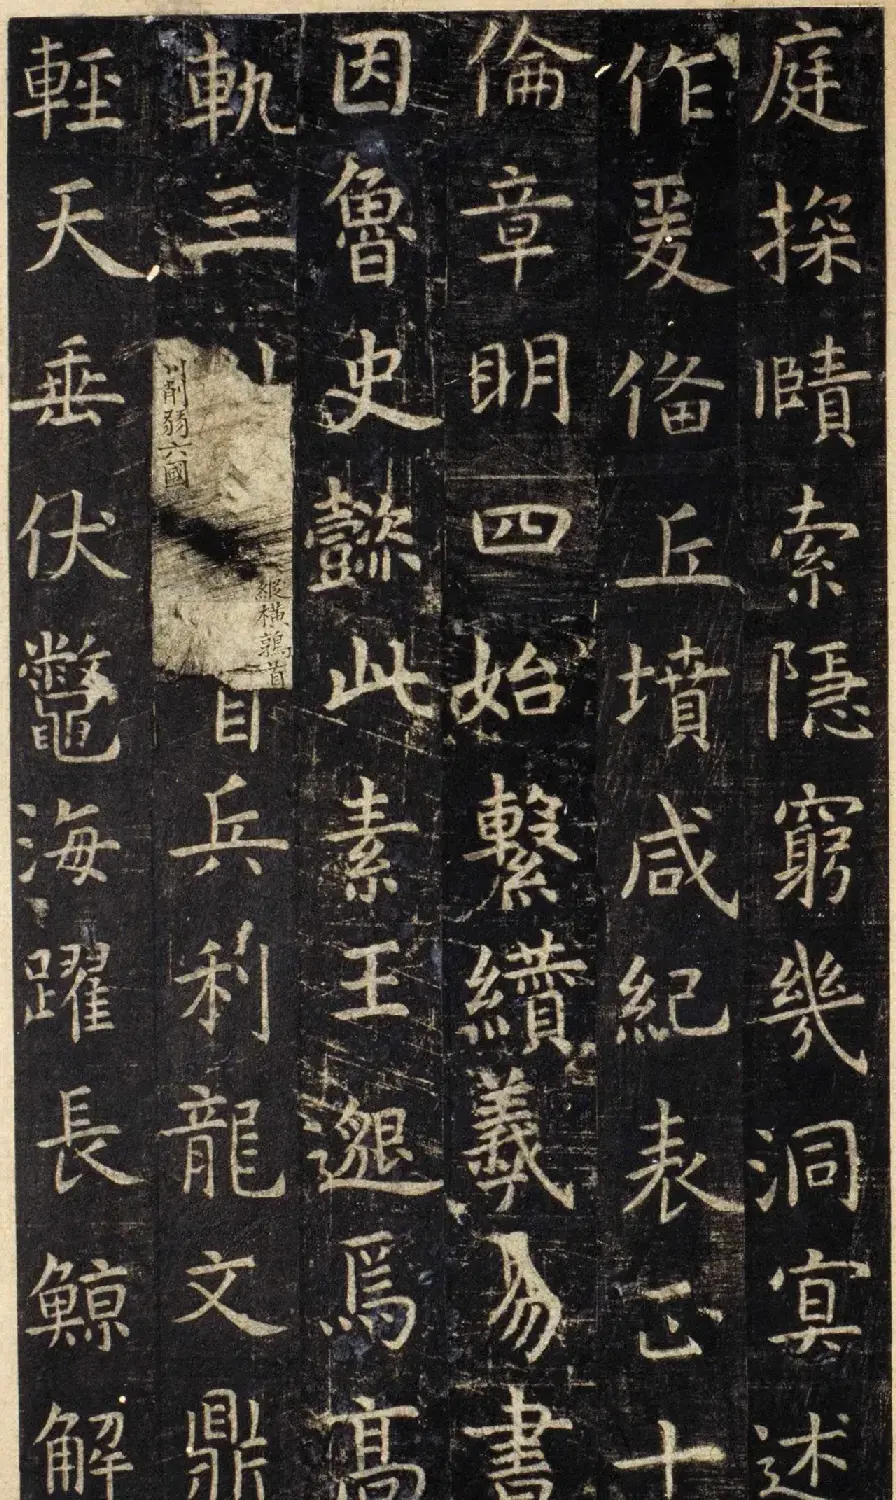 庭探賾索隱窮幾洞冥述
作爰備丘墳咸紀表正十
倫章明四始繫纘羲易書
因魯史懿此素王邈焉高
軌三
縱橫鶉首
川削弱六國
首兵利龍文鼎
輕天垂伏鱉海躍長鯨解